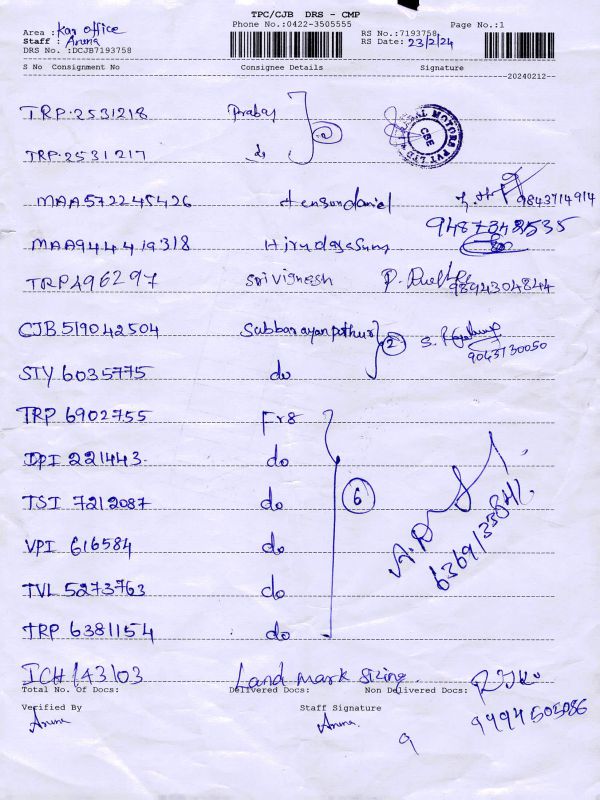 TPC/CJB DRS - CMP
Phone No.:0422-3505555
Page No.:1
Area : Kan office
Staff : Aruna
DRS No. :DCJB7193758
RS No.:7193758
RS Date: 23/2/24
S No Consignment No Consignee Details Signature
20240212
TRP.2531218 Prabay
TRP.2531217 do
MAA572245426 Hensondaniel 9843714914
9487348535
MAA944419318
TRPA96297 Srivignesh 9894304844
CJB519042504 Subbarayanpothur 2
9043730050
STY 6035775 do
TRP 6902755 Fr8
IPI 221443 do
TSI 7212087 do 6
VPI 616584 do
TVL 5273763 do
TRP 6381154 do
ICH143103 Land mark Sizing
Total No. Of Docs: Delivered Docs: Non Delivered Docs:
Verified By Staff Signature
Aruna Aruna
9